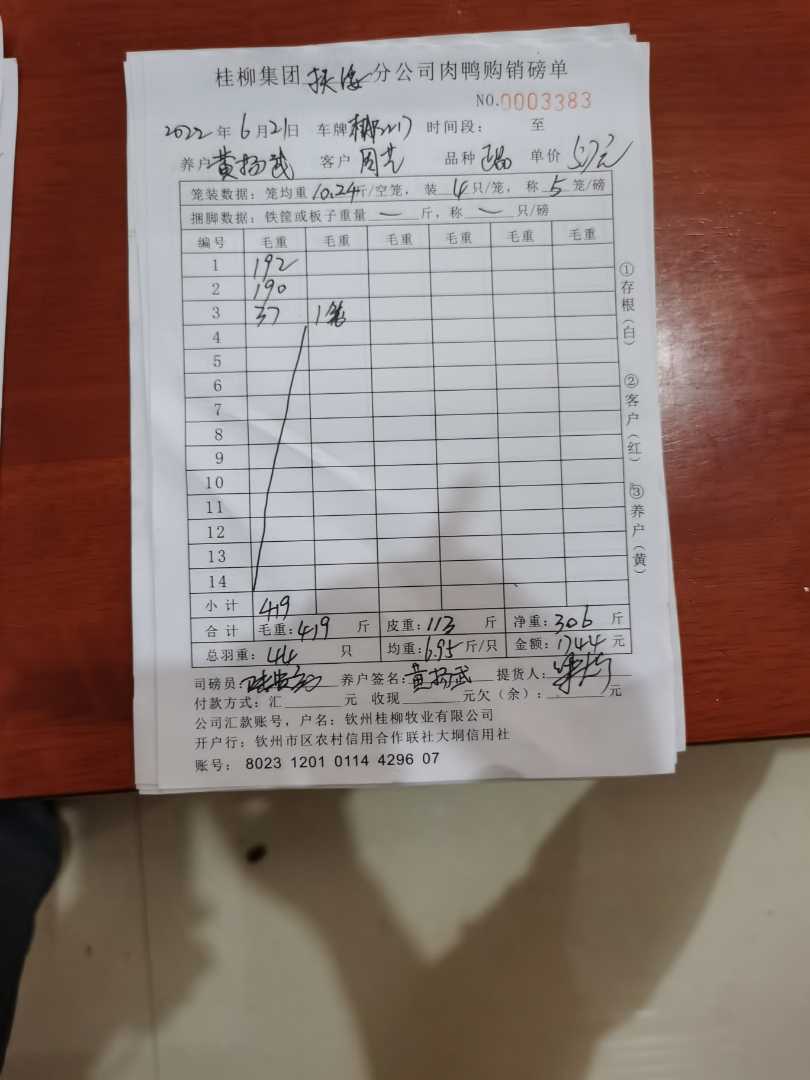 桂柳集团 分公司肉鸭购销磅单
NO.0003383
2022年6月21日 车牌 时间段: 至
养户黄扬武 客户 周芸 品种 单价 5.7元
笼装数据:笼均重10.24斤/空笼,装4只/笼,称5笼/磅
捆脚数据:铁筐或板子重量 一 斤,称 一 只/磅
编号 毛重 毛重 毛重 毛重 毛重 毛重
1 192
2 190
3 37 1笼
4
5
6
7
8
9
10
11
12
13
14
小计 419
合计 毛重:419斤 皮重:113斤 净重:306斤
总羽重:44只 均重:6.95斤/只 金额:1744元
司磅员: 养户签名:黄扬武 提货人:
付款方式:汇 元 收现 元欠(余): 元
公司汇款账号,户名:钦州桂柳牧业有限公司
开户行:钦州市区农村信用合作联社大垌信用社
账号: 8023 1201 0114 4296 07
①存根(白) ②客户(红) ③养户(黄)